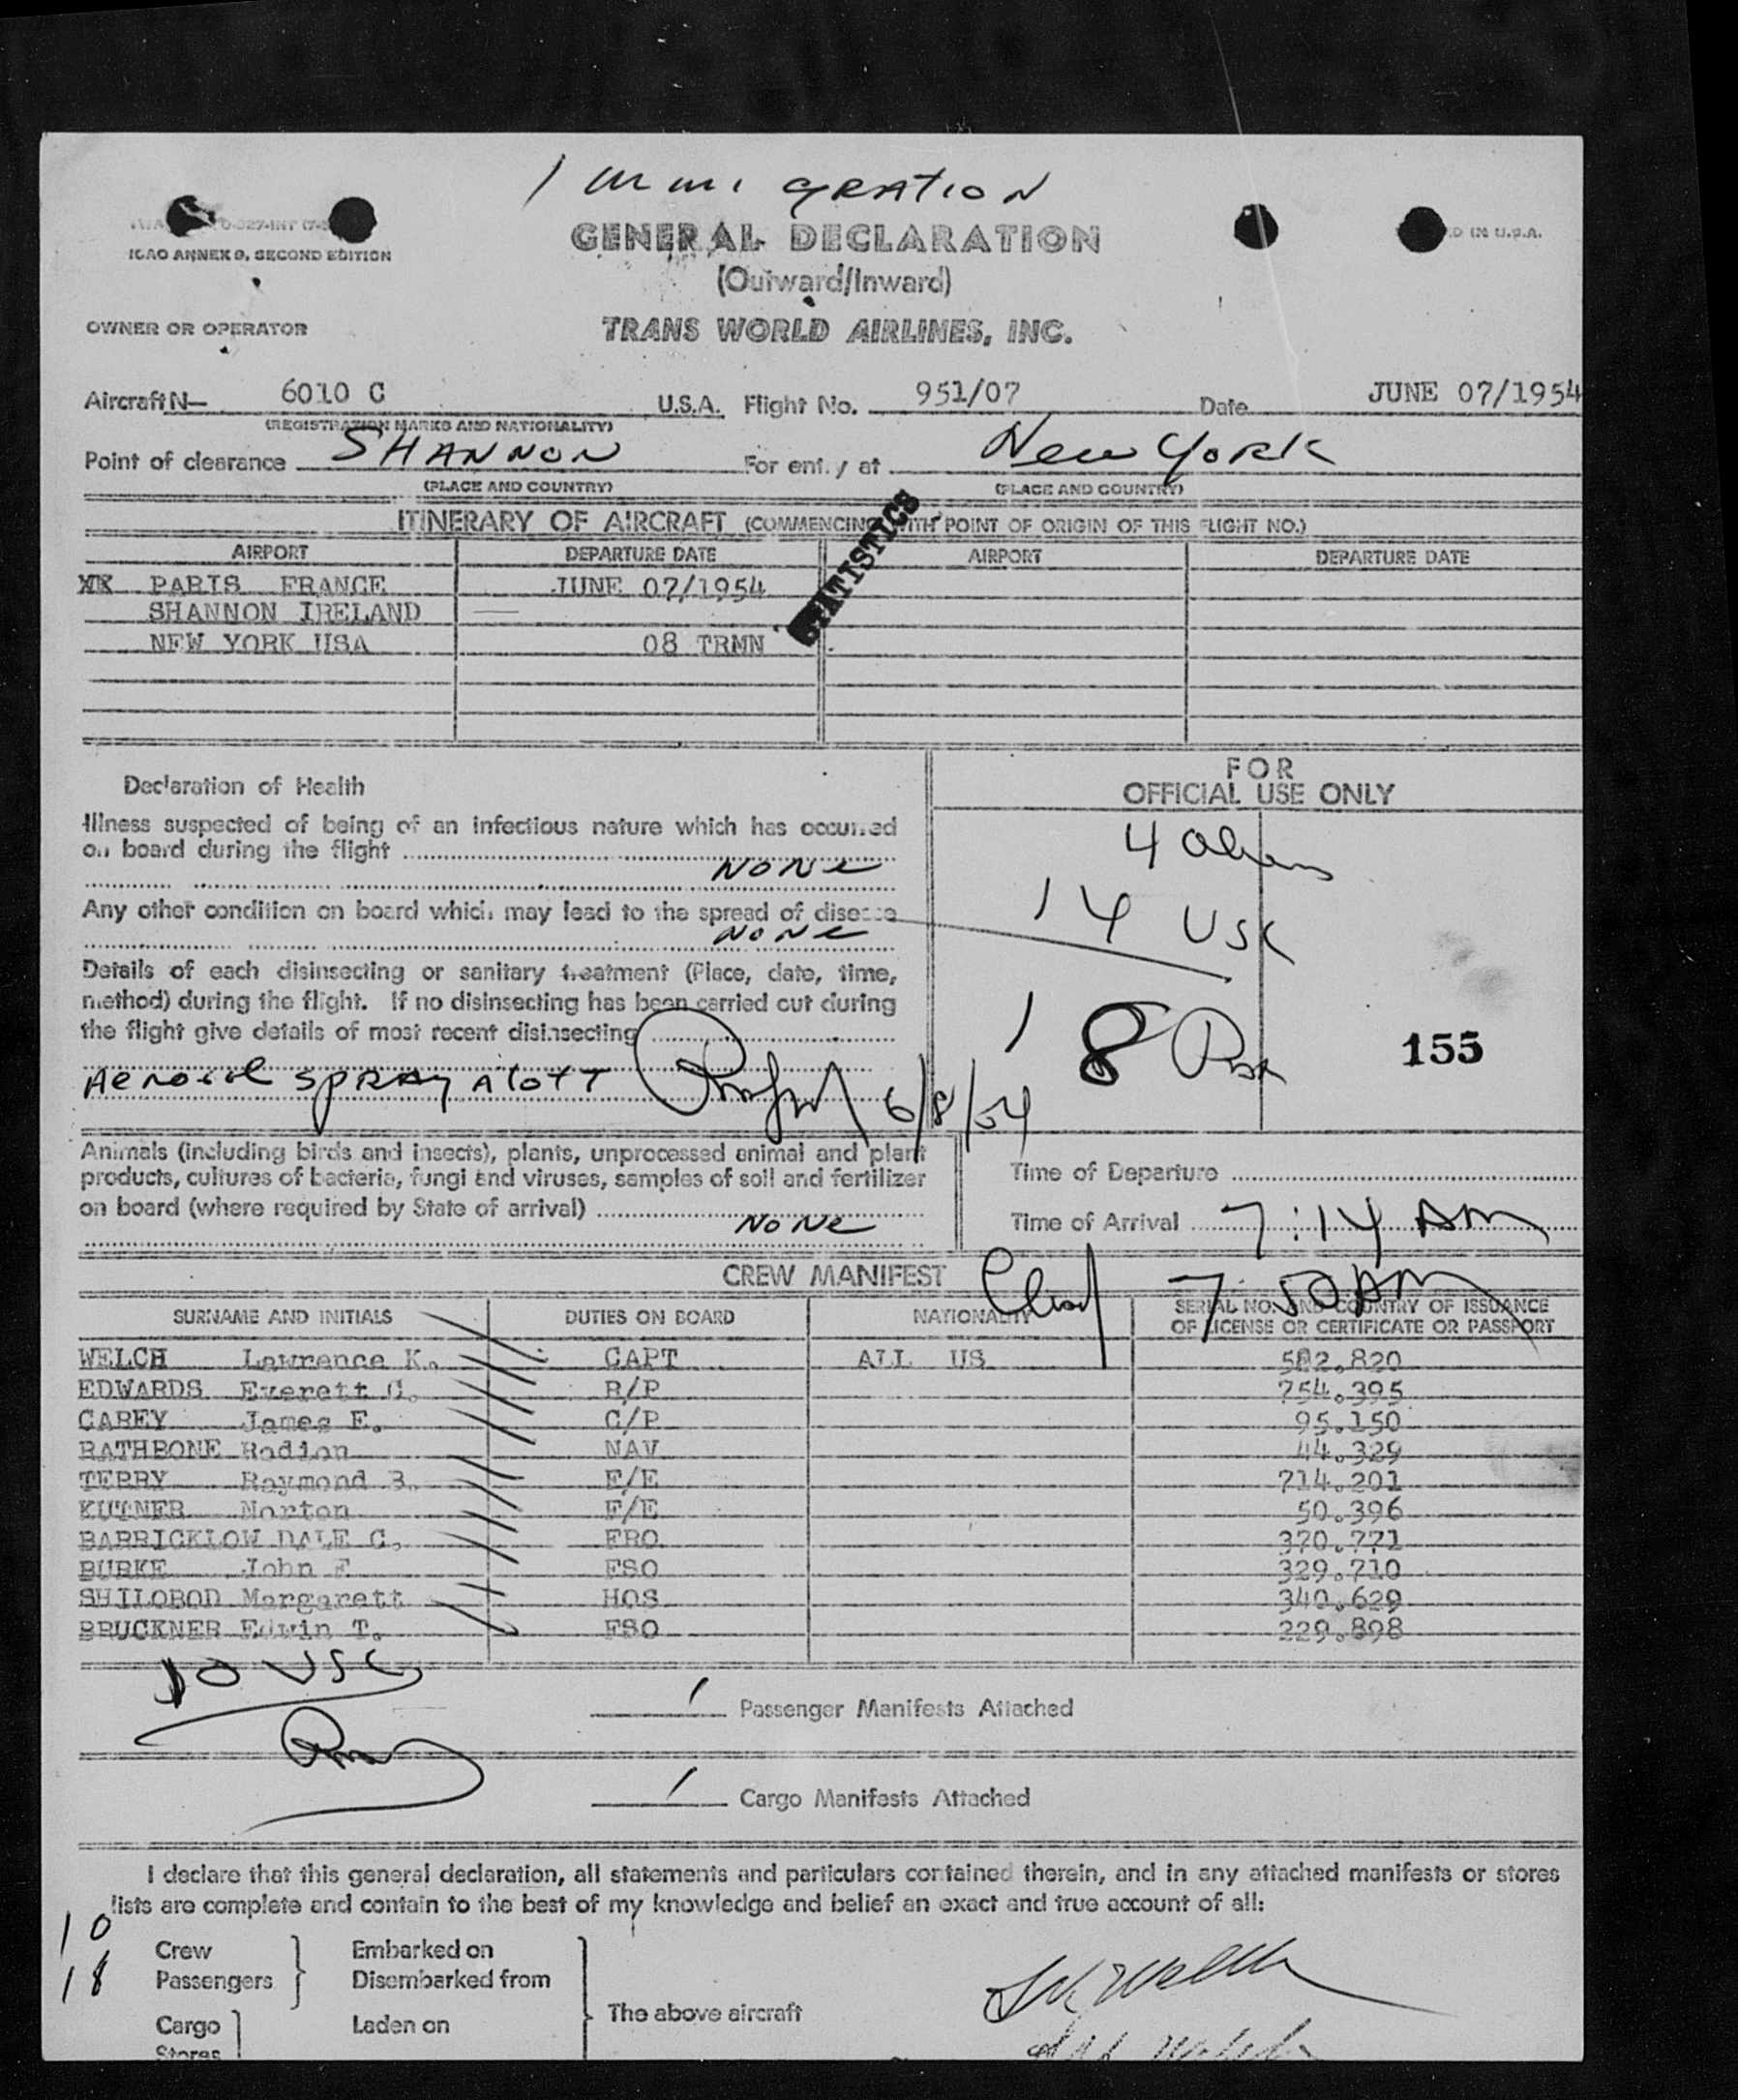 Immigration
ICAO ANNEX 9, SECOND EDITION
GENERAL DECLARATION
(Outward/Inward)
OWNER OR OPERATOR
TRANS WORLD AIRLINES, INC.
Aircraft N— 6010 C U.S.A. Flight No. 951/07 Date JUNE 07/1954
(REGISTRATION MARKS AND NATIONALITY)
Point of clearance SHANNON For entry at New York
(PLACE AND COUNTRY) (PLACE AND COUNTRY)
STATISTICS
ITINERARY OF AIRCRAFT (COMMENCING WITH POINT OF ORIGIN OF THIS FLIGHT NO.)
AIRPORT DEPARTURE DATE AIRPORT DEPARTURE DATE
PARIS FRANCE JUNE 07/1954
SHANNON IRELAND
NEW YORK USA 08 TRMN
Declaration of Health
Illness suspected of being of an infectious nature which has occurred
on board during the flight
NONE
Any other condition on board which may lead to the spread of disease
NONE
Details of each disinsecting or sanitary treatment (Place, date, time,
method) during the flight. If no disinsecting has been carried out during
the flight give details of most recent disinsecting
Aerosol SPRAY Aloft 6/8/54
FOR
OFFICIAL USE ONLY
4 Aliens
14 USC
18 Pax
155
Animals (including birds and insects), plants, unprocessed animal and plant
products, cultures of bacteria, fungi and viruses, samples of soil and fertilizer
on board (where required by State of arrival)
NONE
Time of Departure
Time of Arrival 7:14 AM
7:50 AM
CREW MANIFEST
SURNAME AND INITIALS DUTIES ON BOARD NATIONALITY SERIAL NO. AND COUNTRY OF ISSUANCE
OF LICENSE OR CERTIFICATE OR PASSPORT
WELCH Lawrence K. CAPT ALL US 582.820
EDWARDS Everett C. R/P 754.395
CAREY James E. C/P 95.150
RATHBONE Rodion NAV 44.329
TERRY Raymond B. F/E 714.201
KUTNER Norton F/E 50.396
BARRICKLOW DALE C. FRO 370.771
BURKE John F FSO 329.710
SHILOBOD Margarett HOS 340.629
BRUCKNER Edwin T. FSO 229.898
10 USC
1 Passenger Manifests Attached
1 Cargo Manifests Attached
I declare that this general declaration, all statements and particulars contained therein, and in any attached manifests or stores
lists are complete and contain to the best of my knowledge and belief an exact and true account of all:
10 Crew Embarked on
18 Passengers Disembarked from
The above aircraft
Cargo Laden on
Stores
LK Welch